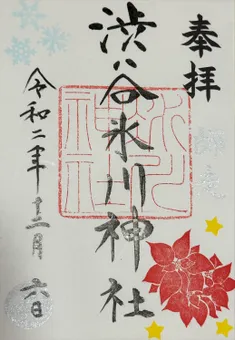 奉拝
渋谷氷川神社
氷川
神社
令和二年十二月六日